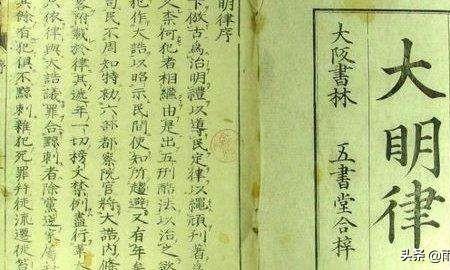 大明律
大阪書林
五書堂合梓
明律序
下倣古為治明禮以導民定律以繩頑刊著
久奈何犯者相繼由是出五刑酷法以治之欲
犯作大誥以昭示民間使知所趨避又有年
司民不周知特勑六部都察院官將大誥內條
附載於律其逓年一切榜文禁例盡行革
只依律與大誥議罪合黥刺者除黨逆家屬
其餘有犯俱不黥刺雜犯死罪并徒流遷徙笞
头条 @雨